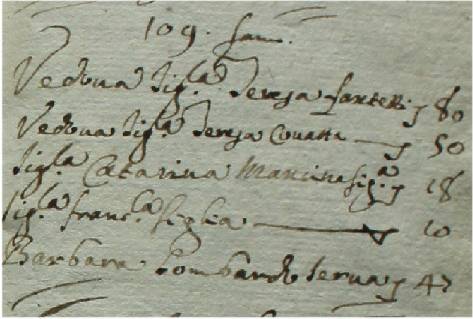 109. fam.
Vedova Sig.ra Teresa fantelli 80
Vedova Sig.ra Teresa Covatti 50
Sig.ra Catarina Mancina fig.a 18
Sig.ra franc.a figlia 10
Barbara Lombardo serva 47